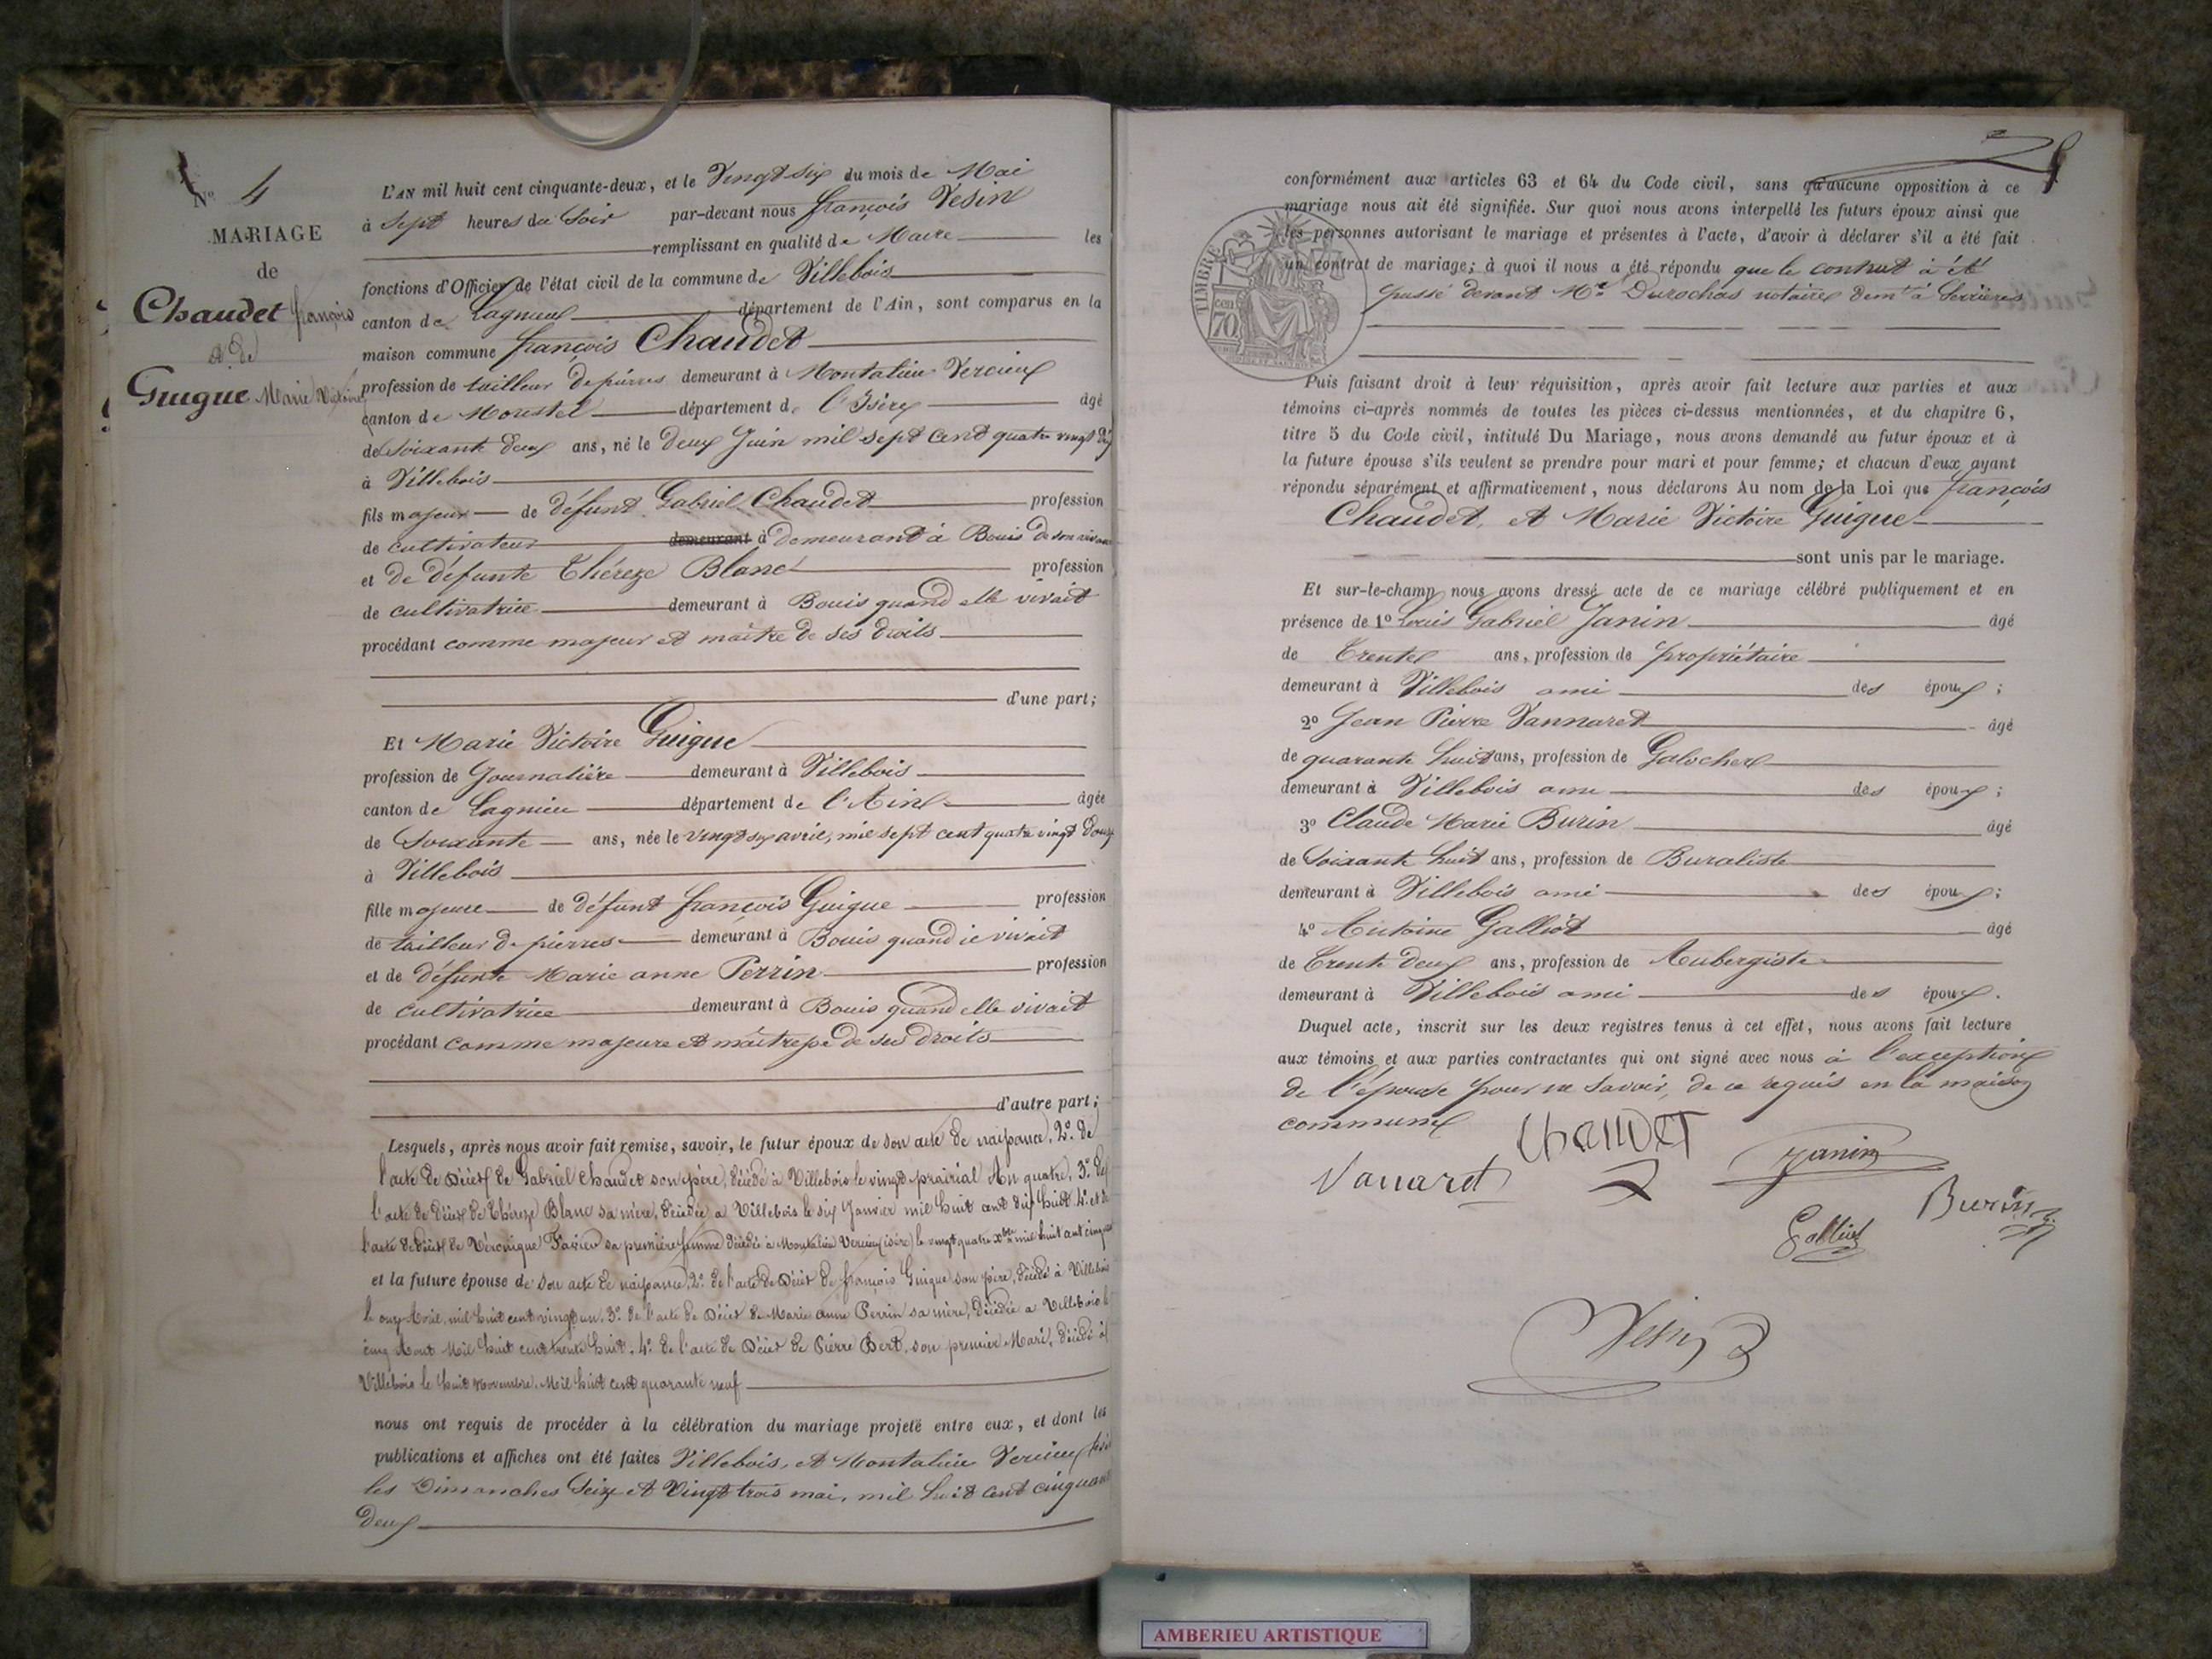 Nº 4
MARIAGE
de
Chaudet françois
et de
Guigue Marie Victoire
L'AN mil huit cent cinquante-deux, et le Vingt six du mois de Mai
à Sept heures du Soir par-devant nous françois Vesin
remplissant en qualité de Maire les
fonctions d'Officier de l'état civil de la commune de Villebois
canton de Lagnieu département de l'Ain, sont comparus en la
maison commune françois Chaudet
profession de tailleur de pierres demeurant à Montalieu Vercieu
canton de Morestel département de l'Isère âgé
de Soixante deux ans, né le deux Juin mil sept cent quatre vingt dix
à Villebois
fils majeur de défunt Gabriel Chaudet profession
de cultivateur demeurant à Demeurant à Bouis de son vivant
et de défunte Théreze Blanc profession
de cultivatrice demeurant à Bouis quand elle vivait
procédant comme majeur et maître de ses droits
d'une part;
Et Marie Victoire Guigue
profession de Journalière demeurant à Villebois
canton de Lagnieu département de l'Ain âgée
de Soixante ans, née le vingt six avril, mil sept cent quatre vingt douze
à Villebois
fille majeure de défunt françois Guigue profession
de tailleur de pierres demeurant à Bouis quand il vivait
et de défunte Marie anne Perrin profession
de cultivatrice demeurant à Bouis quand elle vivait
procédant comme majeure et maîtresse de ses droits
d'autre part;
Lesquels, après nous avoir fait remise, savoir, le futur époux de son acte de naissance, 2º. de
l'acte de Décès de Gabriel Chaudet son père, décédé à Villebois le vingt prairial An quatre, 3º. de
l'acte de décès de Théreze Blanc sa mère, décédée à Villebois le six Janvier mil huit cent dix huit 4º. et de
l'acte de décès de Véronique Favier sa première femme décédée à Montalieu Vercieu (isère) le vingt quatre xbre mil huit cent cinquante
et la future épouse de son acte de naissance, 2º. de l'acte de Décès de françois Guigue son père, décédé à Villebois
le onze Avril, mil huit cent vingt un, 3º. de l'acte de Décès de Marie anne Perrin sa mère, décédée à Villebois le
cinq Aout Mil huit cent trente huit, 4º. de l'acte de Décès de Pierre Bert, son premier Mari, décédé à
Villebois le huit Novembre, Mil huit cent quarante neuf
nous ont requis de procéder à la célébration du mariage projeté entre eux, et dont les
publications et affiches ont été faites Villebois, et Montalieu Vercieu
les Dimanches Seize et Vingt trois mai, mil huit cent cinquante
Deux
conformément aux articles 63 et 64 du Code civil, sans qu'aucune opposition à ce
mariage nous ait été signifiée. Sur quoi nous avons interpellé les futurs époux ainsi que
les personnes autorisant le mariage et présentes à l'acte, d'avoir à déclarer s'il a été fait
un contrat de mariage; à quoi il nous a été répondu que le contrat à été
passé devant Me. Durochas notaire demt à Serrières
TIMBRE
cen
70
Puis faisant droit à leur réquisition, après avoir fait lecture aux parties et aux
témoins ci-après nommés de toutes les pièces ci-dessus mentionnées, et du chapitre 6,
titre 5 du Code civil, intitulé Du Mariage, nous avons demandé au futur époux et à
la future épouse s'ils veulent se prendre pour mari et pour femme; et chacun d'eux ayant
répondu séparément et affirmativement, nous déclarons Au nom de la Loi que françois
Chaudet, et Marie Victoire Guigue
sont unis par le mariage.
Et sur-le-champ nous avons dressé acte de ce mariage célébré publiquement et en
présence de 1º Louis Gabriel Janin âgé
de Trente ans, profession de propriétaire
demeurant à Villebois ami des époux;
2º Jean Pierre Vannaret âgé
de quarante huit ans, profession de Galocher
demeurant à Villebois ami des époux;
3º Claude Marie Burin âgé
de Soixante huit ans, profession de Buraliste
demeurant à Villebois ami des époux;
4º Antoine Galliot âgé
de Trente deux ans, profession de Aubergiste
demeurant à Villebois ami des époux.
Duquel acte, inscrit sur les deux registres tenus à cet effet, nous avons fait lecture
aux témoins et aux parties contractantes qui ont signé avec nous à l'exception
de l'épouse pour ne savoir, de ce requis en la maison
commune
Chaudet
Vanaret
Janin
Burin
Galliot
Vesin
AMBERIEU ARTISTIQUE